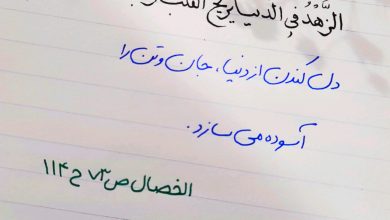 الزُّهْدُ فِي الدنيا يريح القلب
دل کندن از دنیا، جان و تن را
آسوده می سازد.
الخصال ص ۷۳ ح ۱۱۴